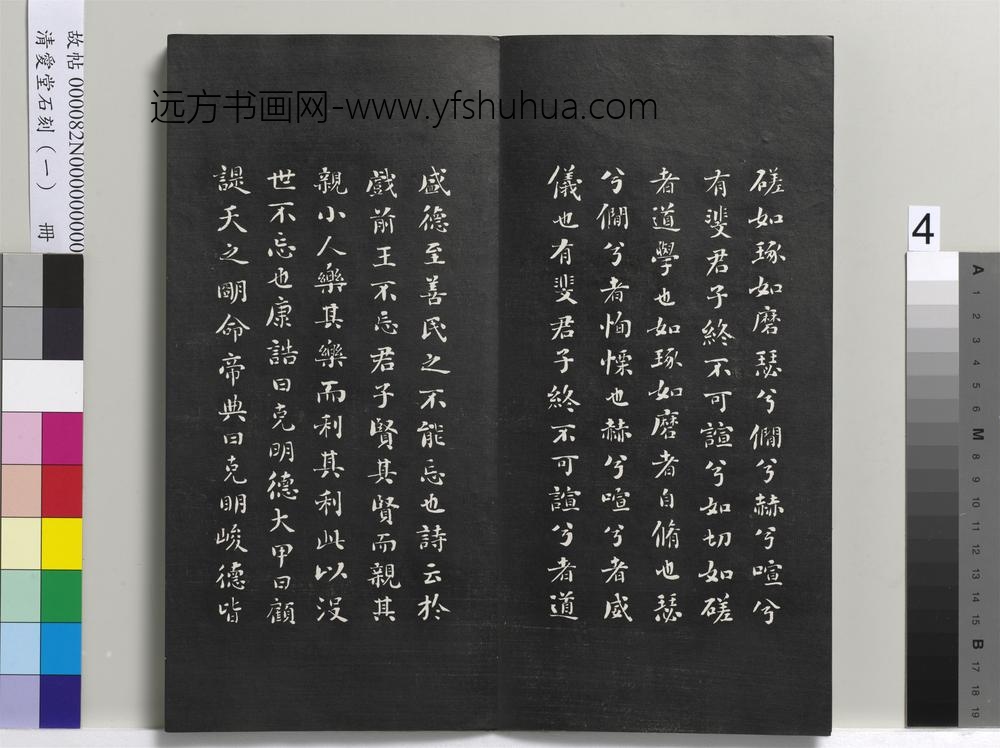 故帖 000082N000000000
清愛堂石刻（一） 冊
远方书画网-www.yfshuhua.com
磋如琢如磨瑟兮僩兮赫兮喧兮
有斐君子終不可諠兮如切如磋
者道學也如琢如磨者自脩也瑟
兮僩兮者恂慄也赫兮喧兮者威
儀也有斐君子終不可諠兮者道
盛德至善民之不能忘也詩云於
戲前王不忘君子賢其賢而親其
親小人樂其樂而利其利此以沒
世不忘也康誥曰克明德大甲曰顧
諟天之明命帝典曰克明峻德皆
4
A
1
2
3
4
5
6
M
8
9
10
11
12
13
14
15
B
17
18
19